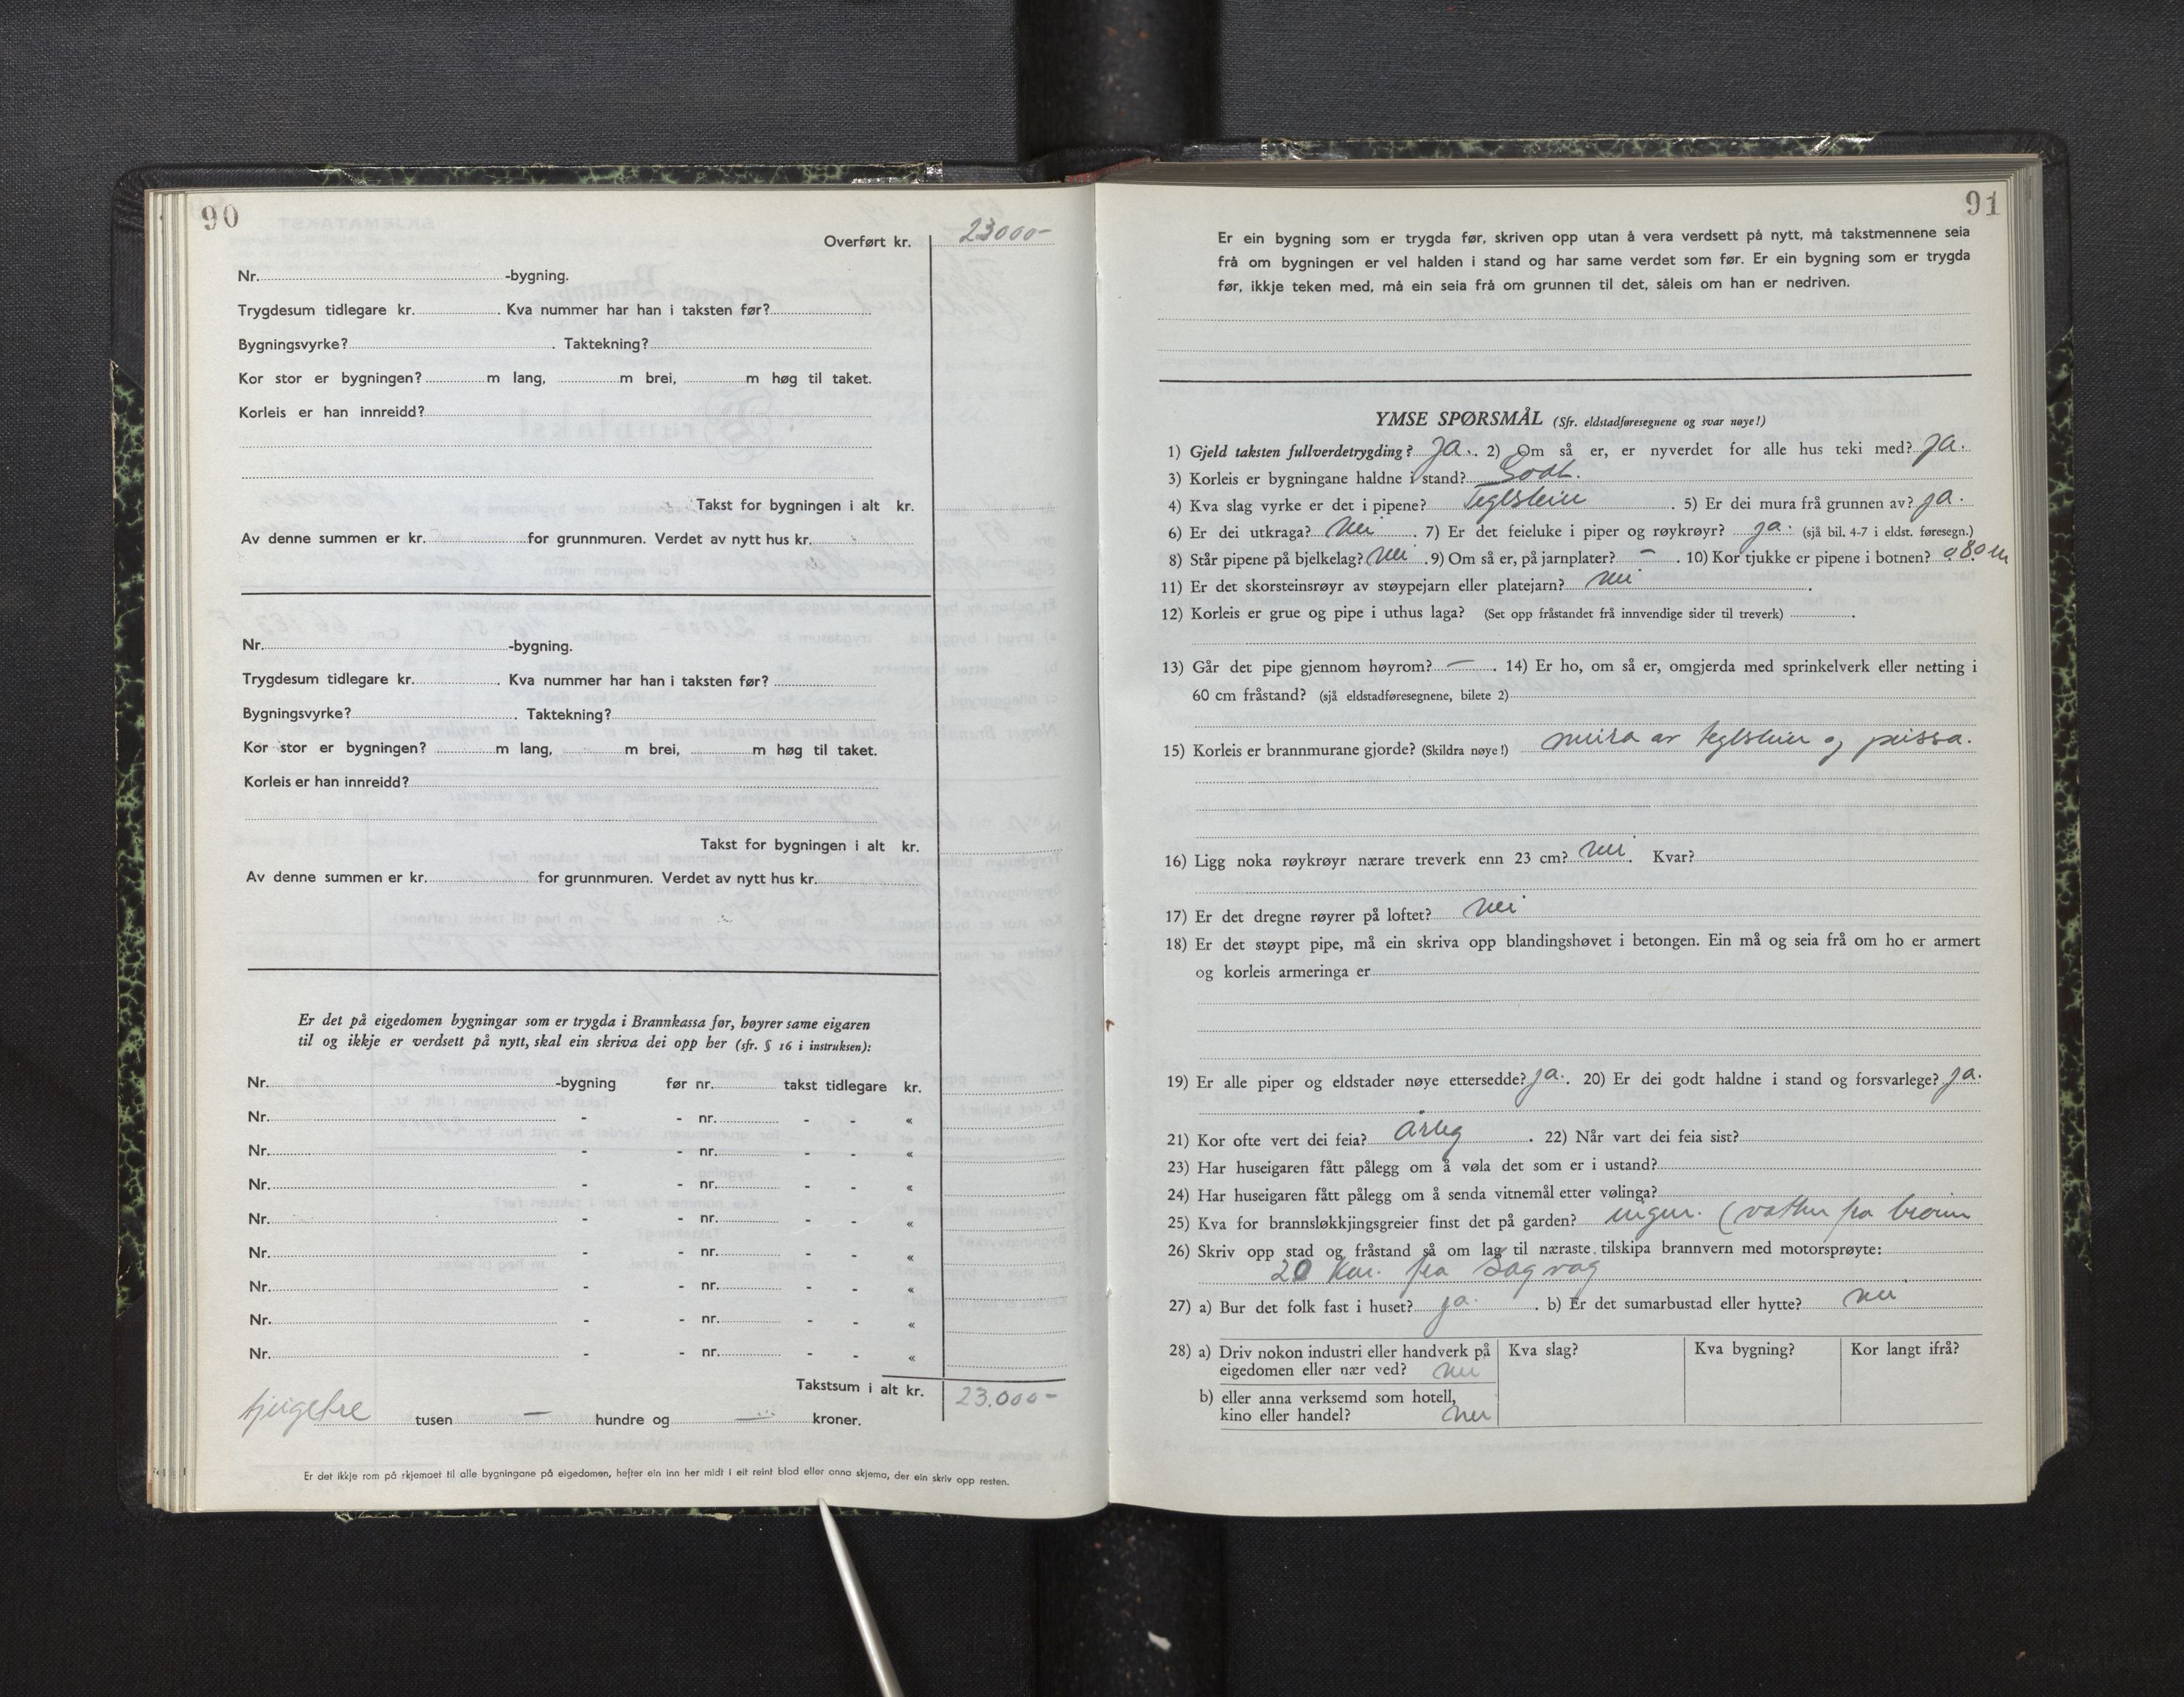 90
Overført kr. 23000-
Nr. -bygning.
Trygdesum tidlegare kr. . Kva nummer har han i taksten før?
Bygningsvyrke? . Taktekning?
Kor stor er bygningen? m lang, m brei, m høg til taket.
Korleis er han innreidd?
Takst for bygningen i alt kr.
Av denne summen er kr. for grunnmuren. Verdet av nytt hus kr.
Nr. -bygning.
Trygdesum tidlegare kr. . Kva nummer har han i taksten før?
Bygningsvyrke? . Taktekning?
Kor stor er bygningen? m lang, m brei, m høg til taket.
Korleis er han innreidd?
Takst for bygningen i alt kr.
Av denne summen er kr. for grunnmuren. Verdet av nytt hus kr.
Er det på eigedomen bygningar som er trygda i Brannkassa før, høyrer same eigaren
til og ikkje er verdsett på nytt, skal ein skriva dei opp her (sfr. § 16 i instruksen):
Nr. -bygning før nr. takst tidlegare kr.
Nr. - - nr. - - «
Nr. - - nr. - - «
Nr. - - nr. - - «
Nr. - - nr. - - «
Nr. - - nr. - - «
Nr. - - nr. - - «
Nr. - - nr. - - «
Nr. - - nr. - - «
Takstsum i alt kr. 23.000-
tjugetre tusen — hundre og — kroner.
Er det ikkje rom på skjemaet til alle bygningane på eigedomen, hefter ein inn her midt i eit reint blad eller anna skjema, der ein skriv opp resten.
91
Er ein bygning som er trygda før, skriven opp utan å vera verdsett på nytt, må takstmennene seia
frå om bygningen er vel halden i stand og har same verdet som før. Er ein bygning som er trygda
før, ikkje teken med, må ein seia frå om grunnen til det, såleis om han er nedriven.
YMSE SPØRSMÅL (Sfr. eldstadføresegnene og svar nøye!)
1) Gjeld taksten fullverdetrygding? Ja. . 2) Om så er, er nyverdet for alle hus teki med? Ja.
3) Korleis er bygningane haldne i stand? Godt.
4) Kva slag vyrke er det i pipene? Teglstein . 5) Er dei mura frå grunnen av? ja.
6) Er dei utkraga? Nei . 7) Er det feieluke i piper og røykrøyr? ja. (sjå bil. 4-7 i eldst. føresegn.)
8) Står pipene på bjelkelag? Nei . 9) Om så er, på jarnplater? — . 10) Kor tjukke er pipene i botnen? 0.80 m
11) Er det skorsteinsrøyr av støypejarn eller platejarn? nei .
12) Korleis er grue og pipe i uthus laga? (Set opp fråstandet frå innvendige sider til treverk) .
13) Går det pipe gjennom høyrom? — . 14) Er ho, om så er, omgjerda med sprinkelverk eller netting i
60 cm fråstand? (sjå eldstadføresegnene, bilete 2)
15) Korleis er brannmurane gjorde? (Skildra nøye!) mura av teglstein og pussa.
16) Ligg noka røykrøyr nærare treverk enn 23 cm? nei . Kvar?
17) Er det dregne røyrer på loftet? nei
18) Er det støypt pipe, må ein skriva opp blandingshøvet i betongen. Ein må og seia frå om ho er armert
og korleis armeringa er
19) Er alle piper og eldstader nøye ettersedde? ja. . 20) Er dei godt haldne i stand og forsvarlege? ja.
21) Kor ofte vert dei feia? årleg . 22) Når vart dei feia sist?
23) Har huseigaren fått pålegg om å vøla det som er i ustand?
24) Har huseigaren fått pålegg om å senda vitnemål etter vølinga?
25) Kva for brannsløkkjingsgreier finst det på garden? ingen. (vatten fra brønn
26) Skriv opp stad og fråstand så om lag til næraste tilskipa brannvern med motorsprøyte:
20 km. fra Sagvåg
27) a) Bur det folk fast i huset? ja. . b) Er det sumarbustad eller hytte? nei
28) a) Driv nokon industri eller handverk på
eigedomen eller nær ved? nei
Kva slag?
Kva bygning?
Kor langt ifrå?
b) eller anna verksemd som hotell,
kino eller handel? nei